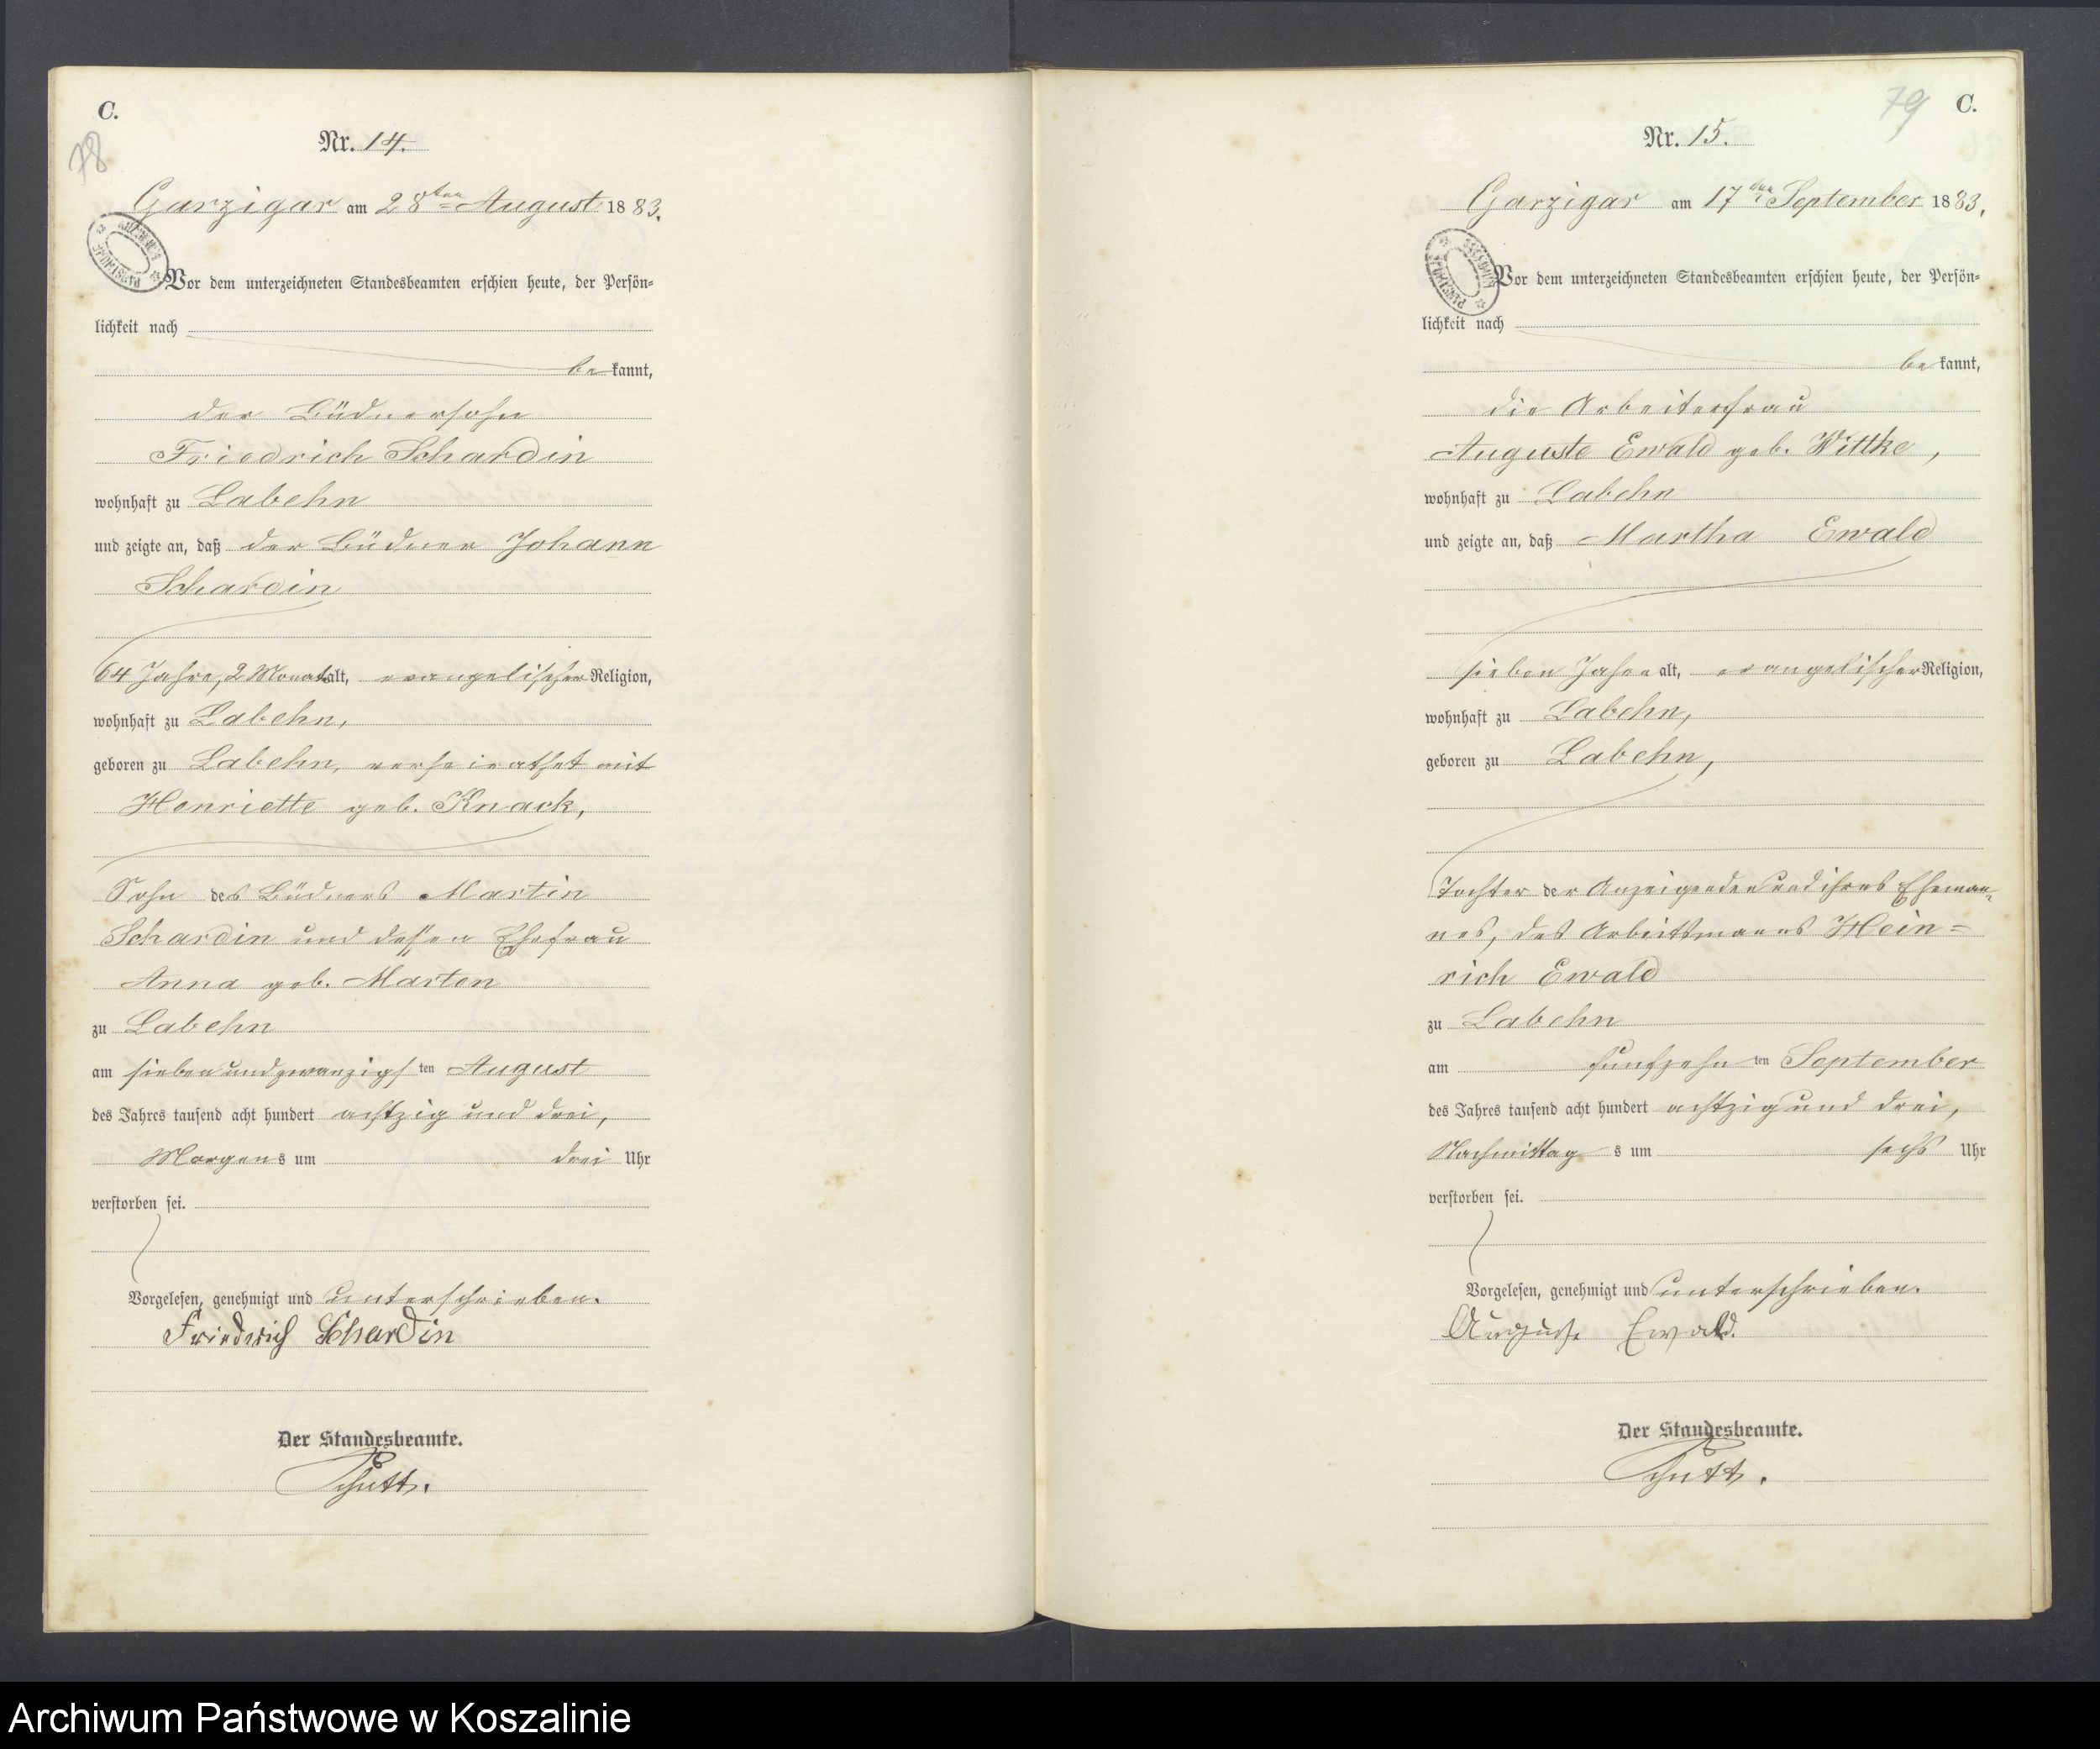 C.
78
Nr. 14.
Garzigar am 28ten August 1883.
Vor dem unterzeichneten Standesbeamten erschien heute, der Persön=
lichkeit nach
bekannt,
der Büdnersohn
Friedrich Schardin
wohnhaft zu Labehn
und zeigte an, daß der Büdner Johann
Schardin
64 Jahre, 2 Monat alt, evangelischer Religion,
wohnhaft zu Labehn,
geboren zu Labehn, verheirathet mit
Henriette geb. Knack,
Sohn des Büdners Martin
Schardin und dessen Ehefrau
Anna geb. Marten
zu Labehn
am siebenundzwanzigsten August
des Jahres tausend acht hundert achtzig und drei,
Morgens um drei Uhr
verstorben sei.
Vorgelesen, genehmigt und unterschrieben.
Friedrich Schardin
Der Standesbeamte.
79 C.
Nr. 15.
Garzigar am 17ten September 1883.
Vor dem unterzeichneten Standesbeamten erschien heute, der Persön=
lichkeit nach
bekannt,
die Arbeiterfrau
Auguste Ewald geb. Wittke,
wohnhaft zu Labehn
und zeigte an, daß Martha Ewald
sieben Jahre alt, evangelischer Religion,
wohnhaft zu Labehn,
geboren zu Labehn,
Tochter der Anzeigenden und ihres Eheman=
nes, des Arbeitsmanns Hein=
rich Ewald
zu Labehn
am fünfzehnten September
des Jahres tausend acht hundert achtzig und drei,
Nachmittags um sechs Uhr
verstorben sei.
Vorgelesen, genehmigt und unterschrieben.
Auguste Ewald.
Der Standesbeamte.
Archiwum Państwowe w Koszalinie